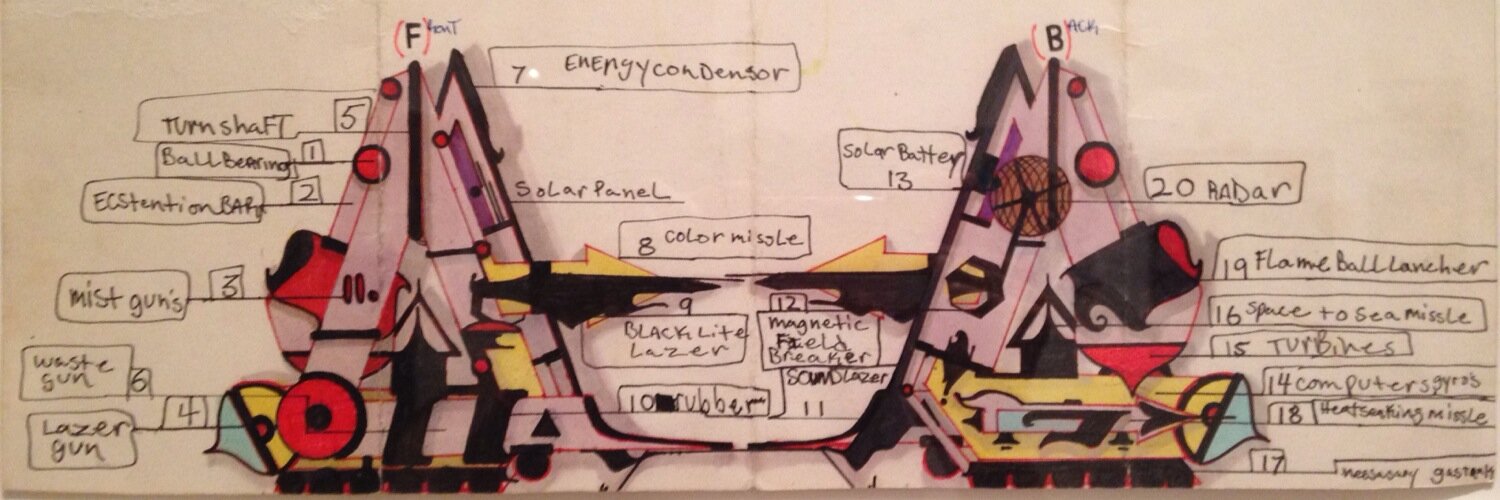 (F)RonT
(B)ACK
7 ENERgyconDensor
TurnshaFT 5
BallBearing 1
ECStentionBARs 2
SolarPaneL
mist gun's 3
waste gun 6
Lazer gun 4
8 color missle
9
BLACKLite
Lazer
10 rubber
SolarBattery
13
20 RADar
12
magnetic
Field
Breaker
SOUNDLAZER
11
19 FlameBallLancher
16 Space to Sea missle
15 TURBines
14 computersgyro's
18 Heatseaking missle
17 nessasary gastank